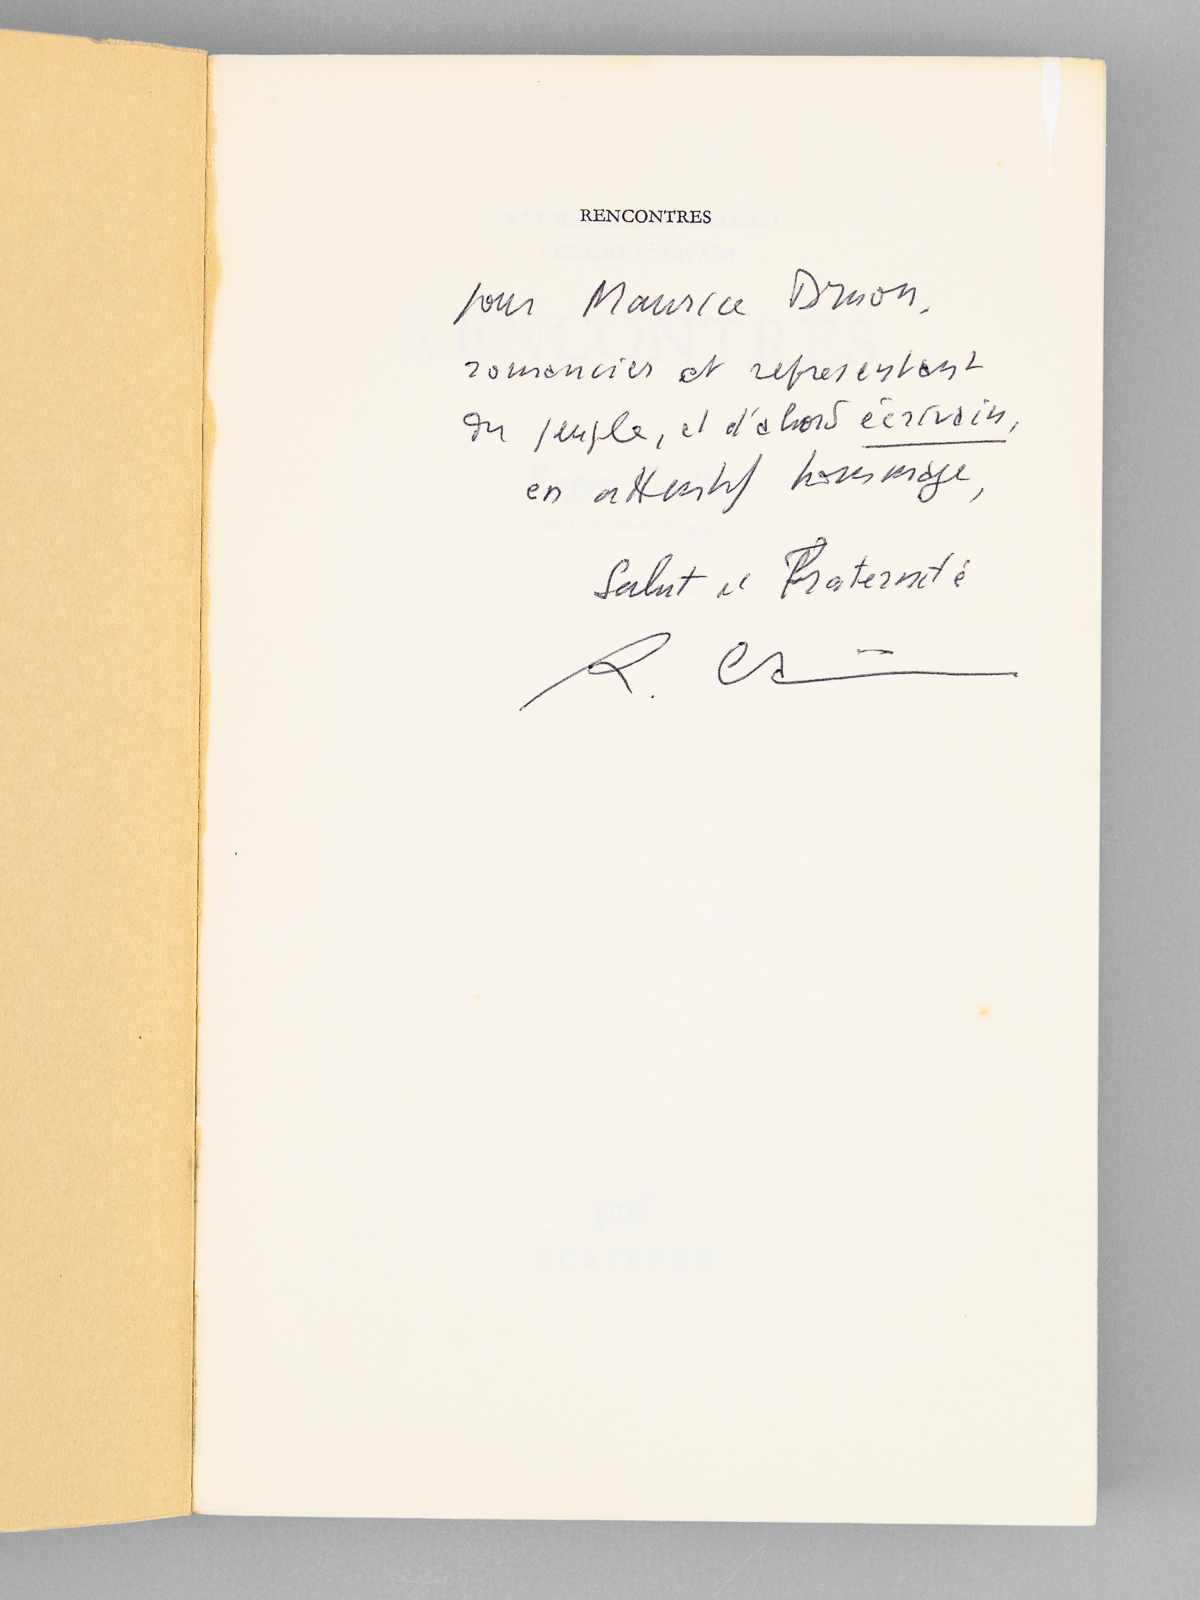 RENCONTRES
pour Maurice Druon,
romancier et représentant
du peuple, et d'abord écrivain,
en attentif hommage,
Salut et Fraternité
R. Caillois
RENCONTRES
puf
ECRITURE